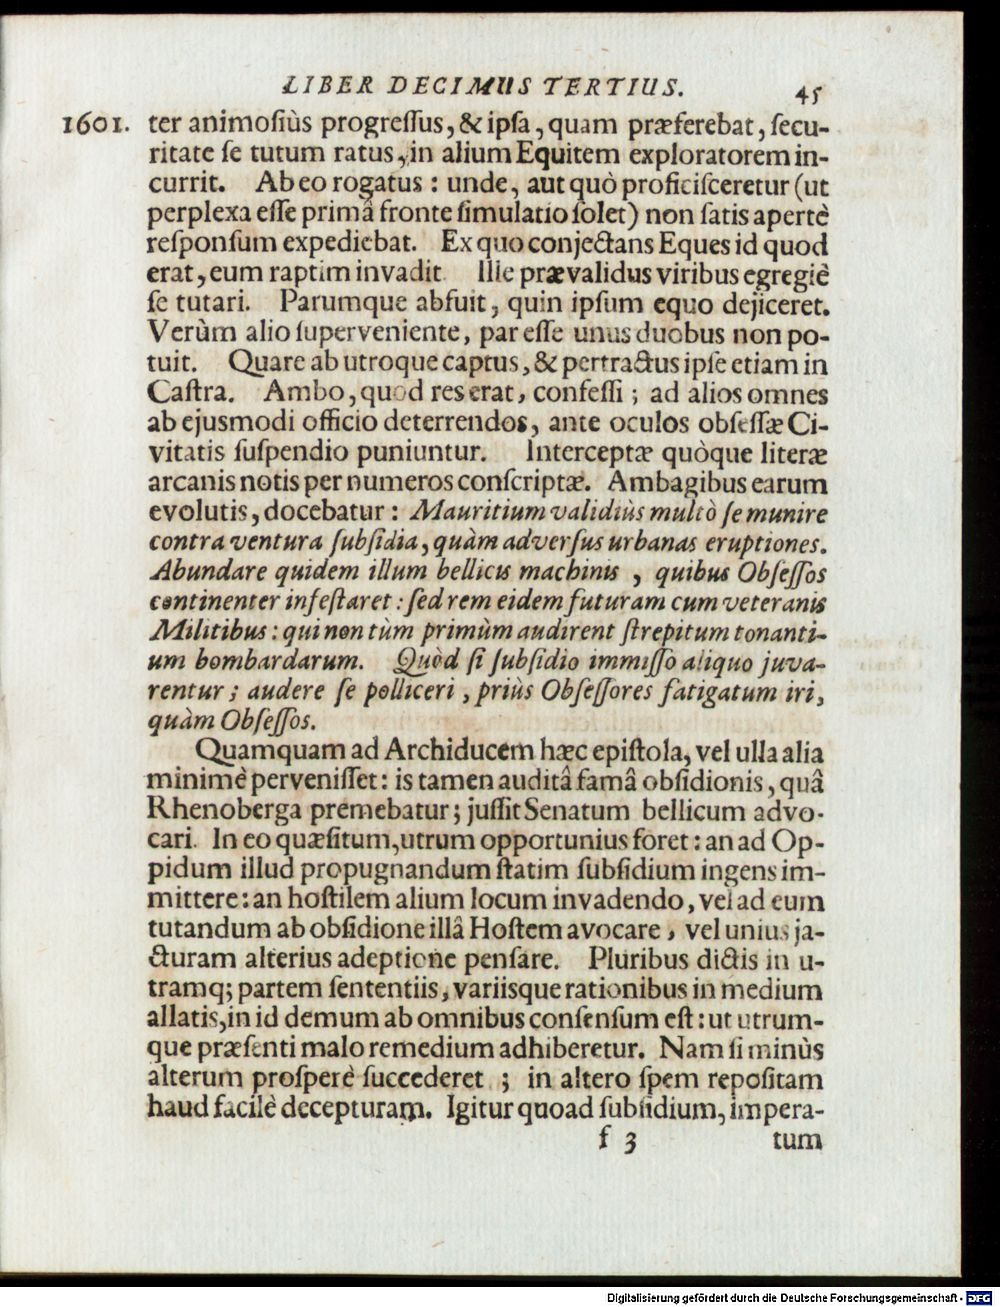 LIBER DECIMUS TERTIUS. 45
1601. ter animoſiùs progreſſus, & ipſa, quam præferebat, ſecu-
ritate ſe tutum ratus, in alium Equitem exploratorem in-
currit. Ab eo rogatus : unde, aut quò proficiſceretur (ut
perplexa eſſe primâ fronte ſimulatio ſolet) non ſatis apertè
reſponſum expediebat. Ex quo conjectans Eques id quod
erat, eum raptim invadit Ille prævalidus viribus egregiè
ſe tutari. Parumque abfuit, quin ipſum equo dejiceret.
Verùm alio ſuperveniente, par eſſe unus duobus non po-
tuit. Quare ab utroque captus, & pertractus ipſe etiam in
Caſtra. Ambo, quod res erat, confeſſi ; ad alios omnes
ab ejusmodi officio deterrendos, ante oculos obſeſſæ Ci-
vitatis ſuſpendio puniuntur. Interceptæ quòque literæ
arcanis notis per numeros conſcriptæ. Ambagibus earum
evolutis, docebatur : Mauritium validiùs multò ſe munire
contra ventura ſubſidia, quàm adverſus urbanas eruptiones.
Abundare quidem illum bellicis machinis , quibus Obſeſſos
continenter infeſtaret : ſed rem eidem futuram cum veteranis
Militibus : qui non tùm primùm audirent ſtrepitum tonanti-
um bombardarum. Quòd ſi ſubſidio immiſſo aliquo juva-
rentur ; audere ſe polliceri , priùs Obſeſſores fatigatum iri,
quàm Obſeſſos.
Quamquam ad Archiducem hæc epiſtola, vel ulla alia
minimè perveniſſet : is tamen auditâ famâ obſidionis, quâ
Rhenoberga premebatur ; juſſit Senatum bellicum advo-
cari. In eo quæſitum, utrum opportunius foret : an ad Op-
pidum illud propugnandum ſtatim ſubſidium ingens im-
mittere : an hoſtilem alium locum invadendo, vel ad eum
tutandum ab obſidione illâ Hoſtem avocare, vel unius ja-
cturam alterius adeptione penſare. Pluribus dictis in u-
tramq; partem ſententiis, variisque rationibus in medium
allatis, in id demum ab omnibus conſenſum eſt : ut utrum-
que præſenti malo remedium adhiberetur. Nam ſi minùs
alterum proſperè ſuccederet ; in altero ſpem repoſitam
haud facilè decepturam. Igitur quoad ſubſidium, impera-
f 3 tum
Digitalisierung gefördert durch die Deutsche Forschungsgemeinschaft - DFG